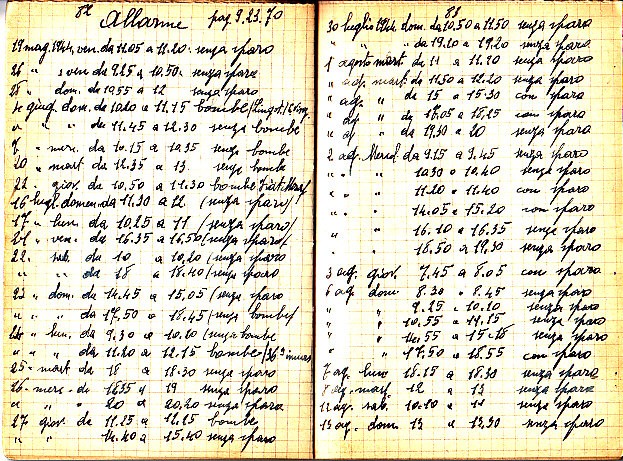 82
Allarme pag. 9.23.70
19 mag. 1944 ven. da 11.05 a 11.20. senza sparo
" " ven. da 9.25 a 10.50. senza sparo
" dom. da 10.55 a 12 senza sparo
4 giug. dom. da 10.20 a 11.15 bombe
" " " da 11.45 a 12.30 senza bombe
7 " merc. da 10.15 a 10.35 senza bombe
20 " mart. da 12.35 a 13. senza bombe
22 " giov. da 10.50 a 11.30 bombe
16 lugl. domen. da 11.30 a 12 (senza sparo)
17 " lun. da 10.25 a 11 (senza sparo)
21 " ven. da 16.35 a 16.50 (senza sparo)
22. sab. da 10 a 10.20 (senza sparo)
" " da 18 a 18.40 (senza sparo)
23 " dom. da 14.45 a 15.05 (senza sparo)
" " da 17.50 a 18.45 (senza bombe)
24 " lun. da 9.30 a 10.20 (senza bombe
" " " da 11.20 a 12.15 bombe
25 " mart. da 18 a 18.30 senza sparo
26 " merc. da 18.35 a 19 senza sparo
" " " 20 a 20.20 senza sparo
27 giov. da 11.25 a 12.15 bombe
" " 14.40 a 15.40 senza sparo
83
30 luglio 1944. dom. da 10.50 a 11.50 senza sparo
" " " da 19.20 a 19.20 senza sparo
1 agosto mart. da 11 a 11.20 senza sparo
" ag. mart. da 11.50 a 12.20 senza sparo
" ag. " da 15 a 15.30 con sparo
" ag " da 17.05 a 18.25 con sparo
" ag " da 19.30 a 20 senza sparo
2 ag. Mercol. da 9.15 a 9.45 senza sparo
" " " 10.30 a 10.40 senza sparo
" " " 11.20 a 11.40 con sparo
" " " 14.05 a 15.20 con sparo
" " 16.10 a 16.35 senza sparo
" " 18.50 a 19.30 senza sparo
3 ag. giov. 7.45 a 8.05 con sparo
6 ag. dom. 8.30 a 8.45 senza sparo
" " 9.25 a 10.10 senza sparo
" " 10.55 a 11.15 senza sparo
" " 14.55 a 15.18 senza sparo
" " 17.50 a 18.55 con sparo
7 ag. lun. 18.15 a 18.30 senza sparo
8 ag. mart. 12 a 13 senza sparo
12 ag. sab. 10.10 a 11 senza sparo
13 ag. dom. 13 a 13.30 senza sparo